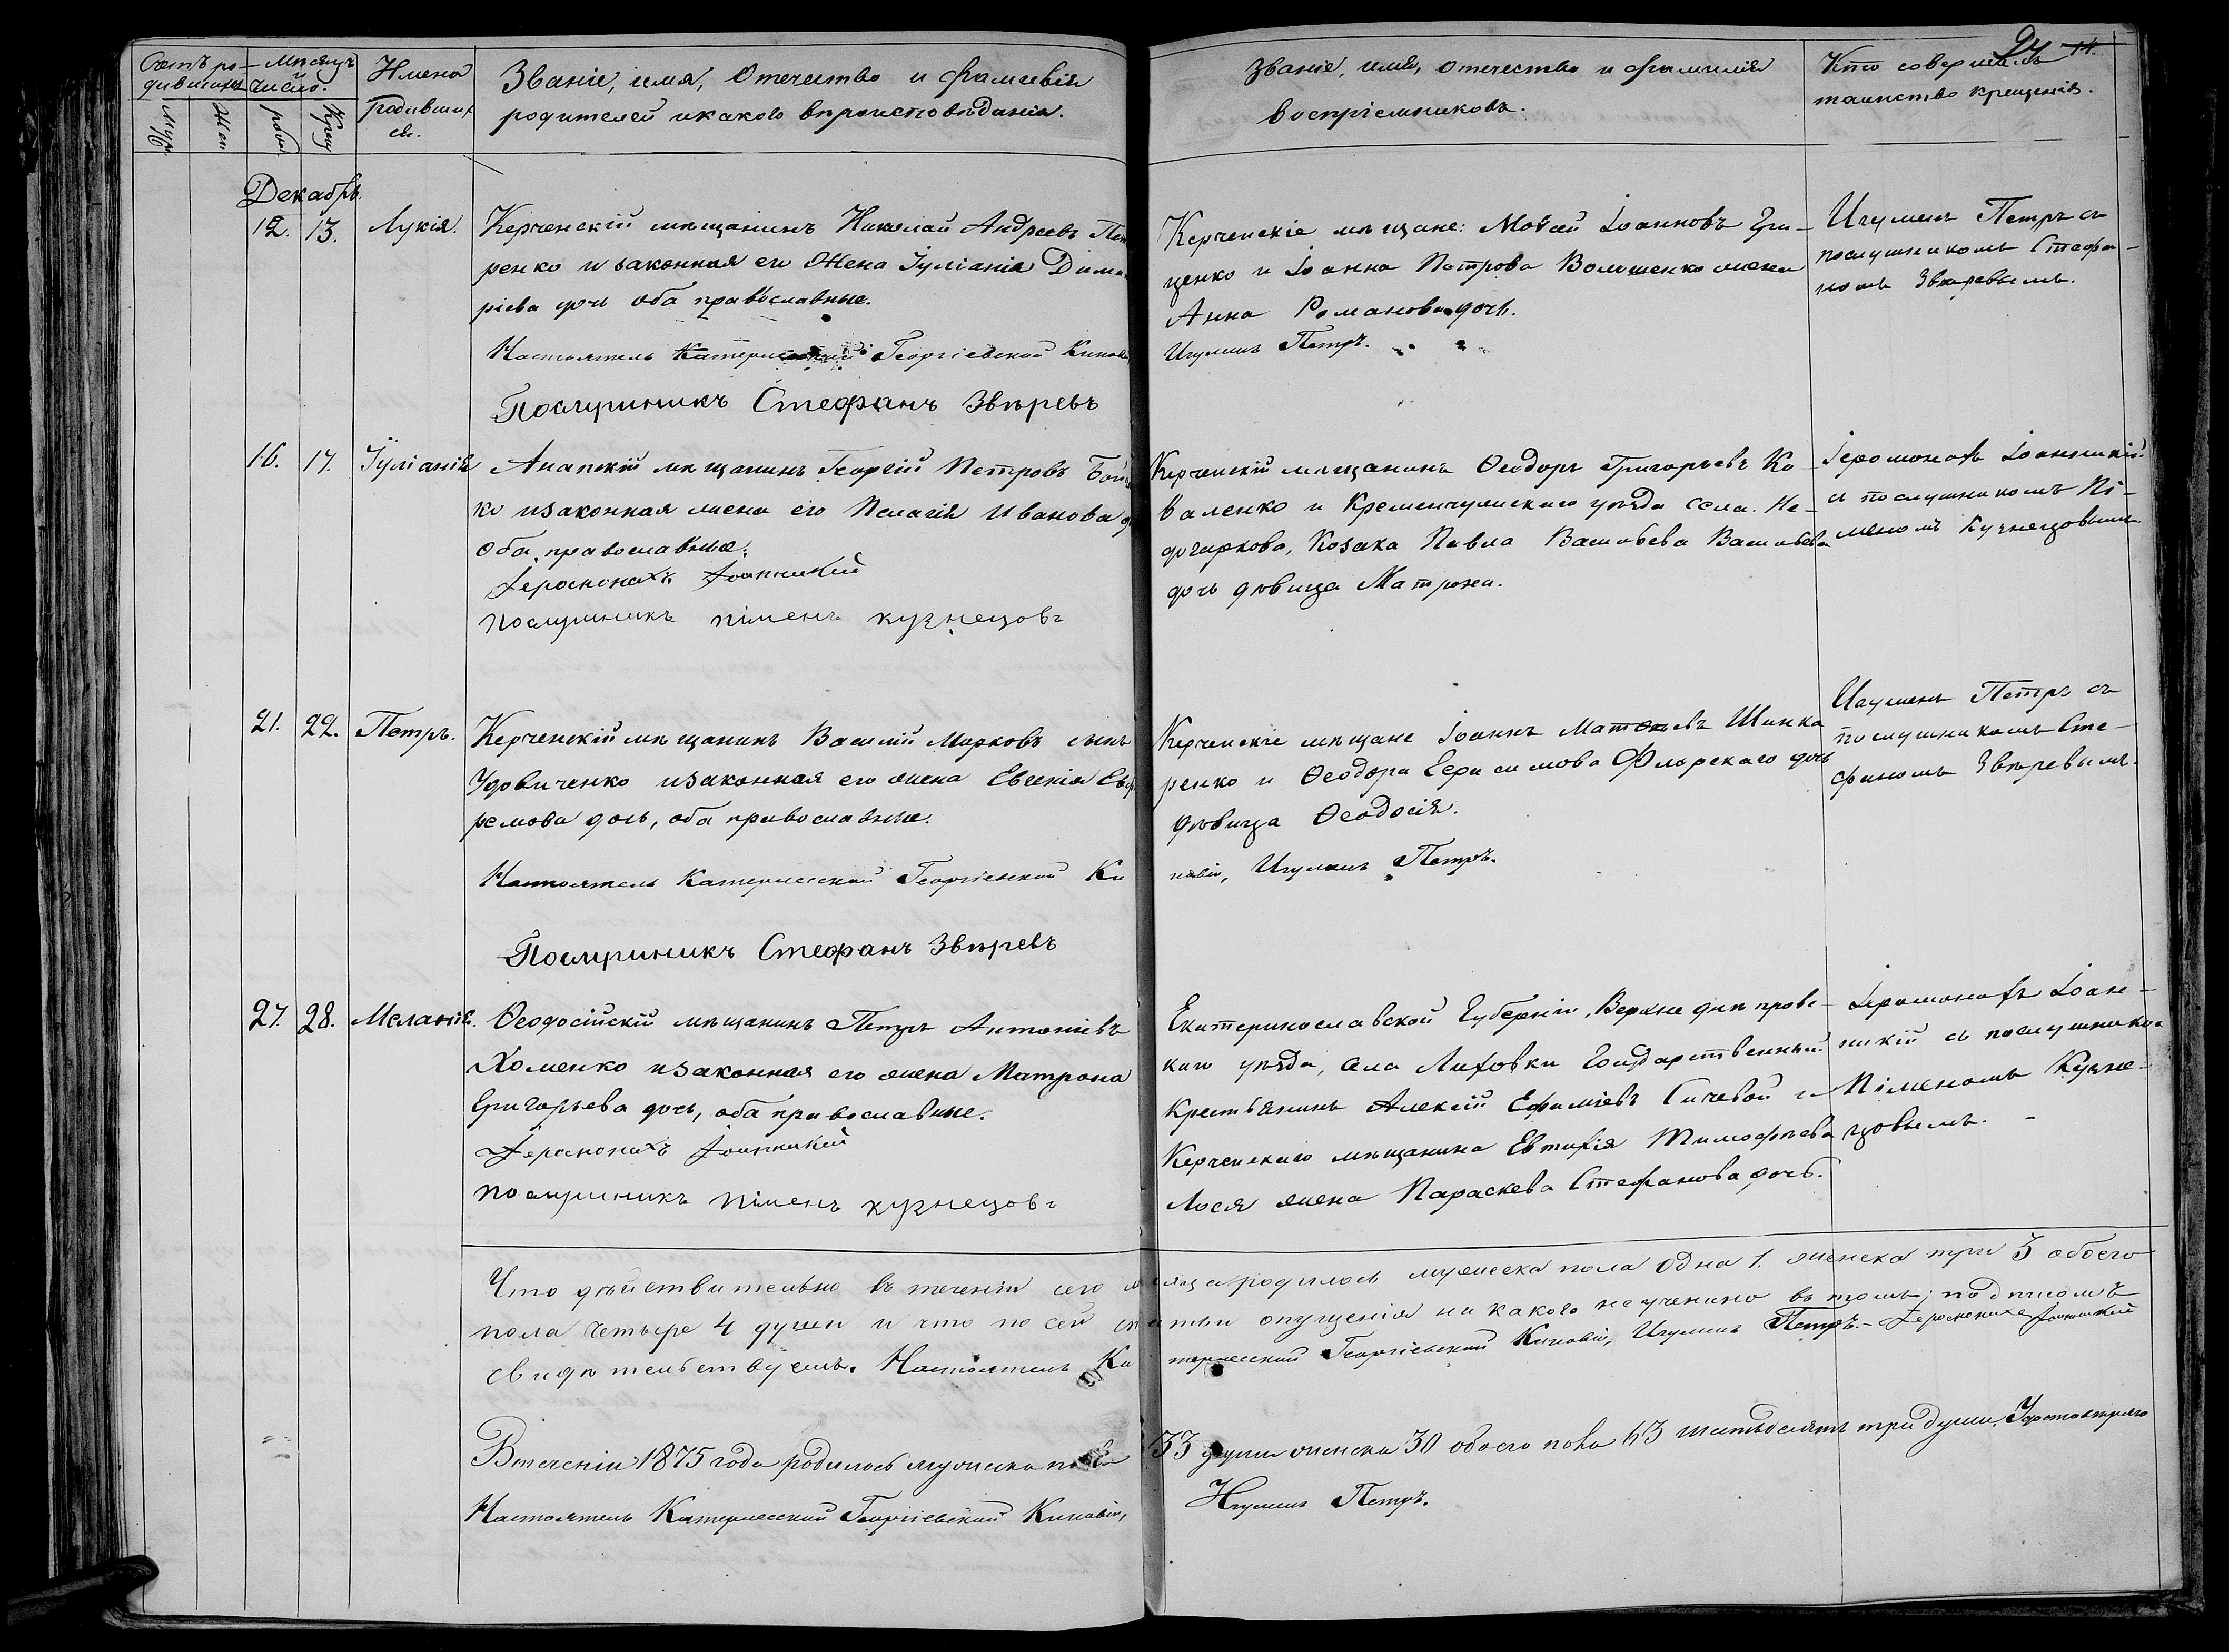 24 14.
Счетъ родившихся
Мѣсяцъ и число.
Имена родившихся.
Званіе, имя, отечество и фамилія
родителей и какого вѣроисповѣданія.
Званіе, имя, отечество и фамилія
воспріемниковъ.
Кто совершалъ
таинство крещенія.
Муж. Жен. рожд. Крещ.
Декабрь.
12. 13. Лукія.
Керченскій мѣщанинъ Николай Андреевъ
ренко и законная его Жена Іуліанія Дими
ріева дочь оба православные.
Настоятель Георгіевской Кинові
Послушникъ Стефанъ Звѣревъ
Керченскіе мѣщане: Моѵсей Іоанновъ Гри-
ценко и Іоанна Петрова Волошенко жена
Анна Романова дочь.
Игуменъ Петръ.
Игуменъ Петръ съ
послушникомъ Стефа-
номъ Звѣревымъ.
16. 17. Іуліанія
Анапскій мѣщанинъ Георгій Петровъ
ко и законная жена его Пелагія Иванова
оба православные.
Іеромонахъ Іоанникій
послушникъ піменъ кузнецовъ
Керченскій мѣщанинъ Ѳеодоръ Григорьевъ Ко-
валенко и Кременчугскаго уѣзда села. Не-
догаркова, Козака Павла Васильева Васильева
дочь дѣвица Матрона.
Іеромонахъ Іоанникій
съ послушникомъ Пі-
меномъ Кузнецовымъ
21. 22. Петръ.
Керченскій мѣщанинъ Василій Марковъ сынъ
Удовиченко и законная его жена Евгенія Евф
ремова дочь, оба православные.
Настоятель Катерлесской Георгіевской Ки
Послушникъ Стефанъ Звѣревъ
Керченскіе мѣщане Іоаннъ Матѳіевъ Шинка
ренко и Ѳеодора Герасимова Флорскаго дочь
дѣвица Ѳеодосія.
новіи, Игуменъ Петръ.
Игуменъ Петръ съ
послушникомъ Сте-
фаномъ Звѣревымъ.
27. 28. Меланія.
Ѳеодосійскій мѣщанинъ Петръ Антоніевъ
Хоменко и законная его жена Матрона
Григорьева дочь, оба православные.
Іеромонахъ Іоанникій
послушникъ піменъ кузнецовъ
Екатеринославской Губерніи, Верхнеднѣпровс-
каго уѣзда, села Лиховки Государственный
Крестьянинъ Алексій Ефиміевъ Сичевой и
Керченскаго мѣщанина Евтихія Тимофѣева
Лося жена Параскева Стефанова дочь.
Іеромонахъ Іоан-
никій съ послушнико
Піменомъ Кузне-
цовымъ.
Что дѣйствительно въ теченіи сего мѣсяца родилось мужеска пола одна 1. женска три 3 обоего
пола четыре 4 души и что по сей статьи опущенія ни какого неучинено въ томъ; подписомъ
свидѣтельствуемъ. Настоятель Катерлесской Георгіевской Киновіи, Игуменъ Петръ. - Іеромонахъ Іоанникій
Втеченіи 1875 года родилось мужеска пола 33 души женска 30 обоего пола 63 шестьдесятъ три души.
Настоятель Катерлесской Георгіевской Киновіи, Игуменъ Петръ.